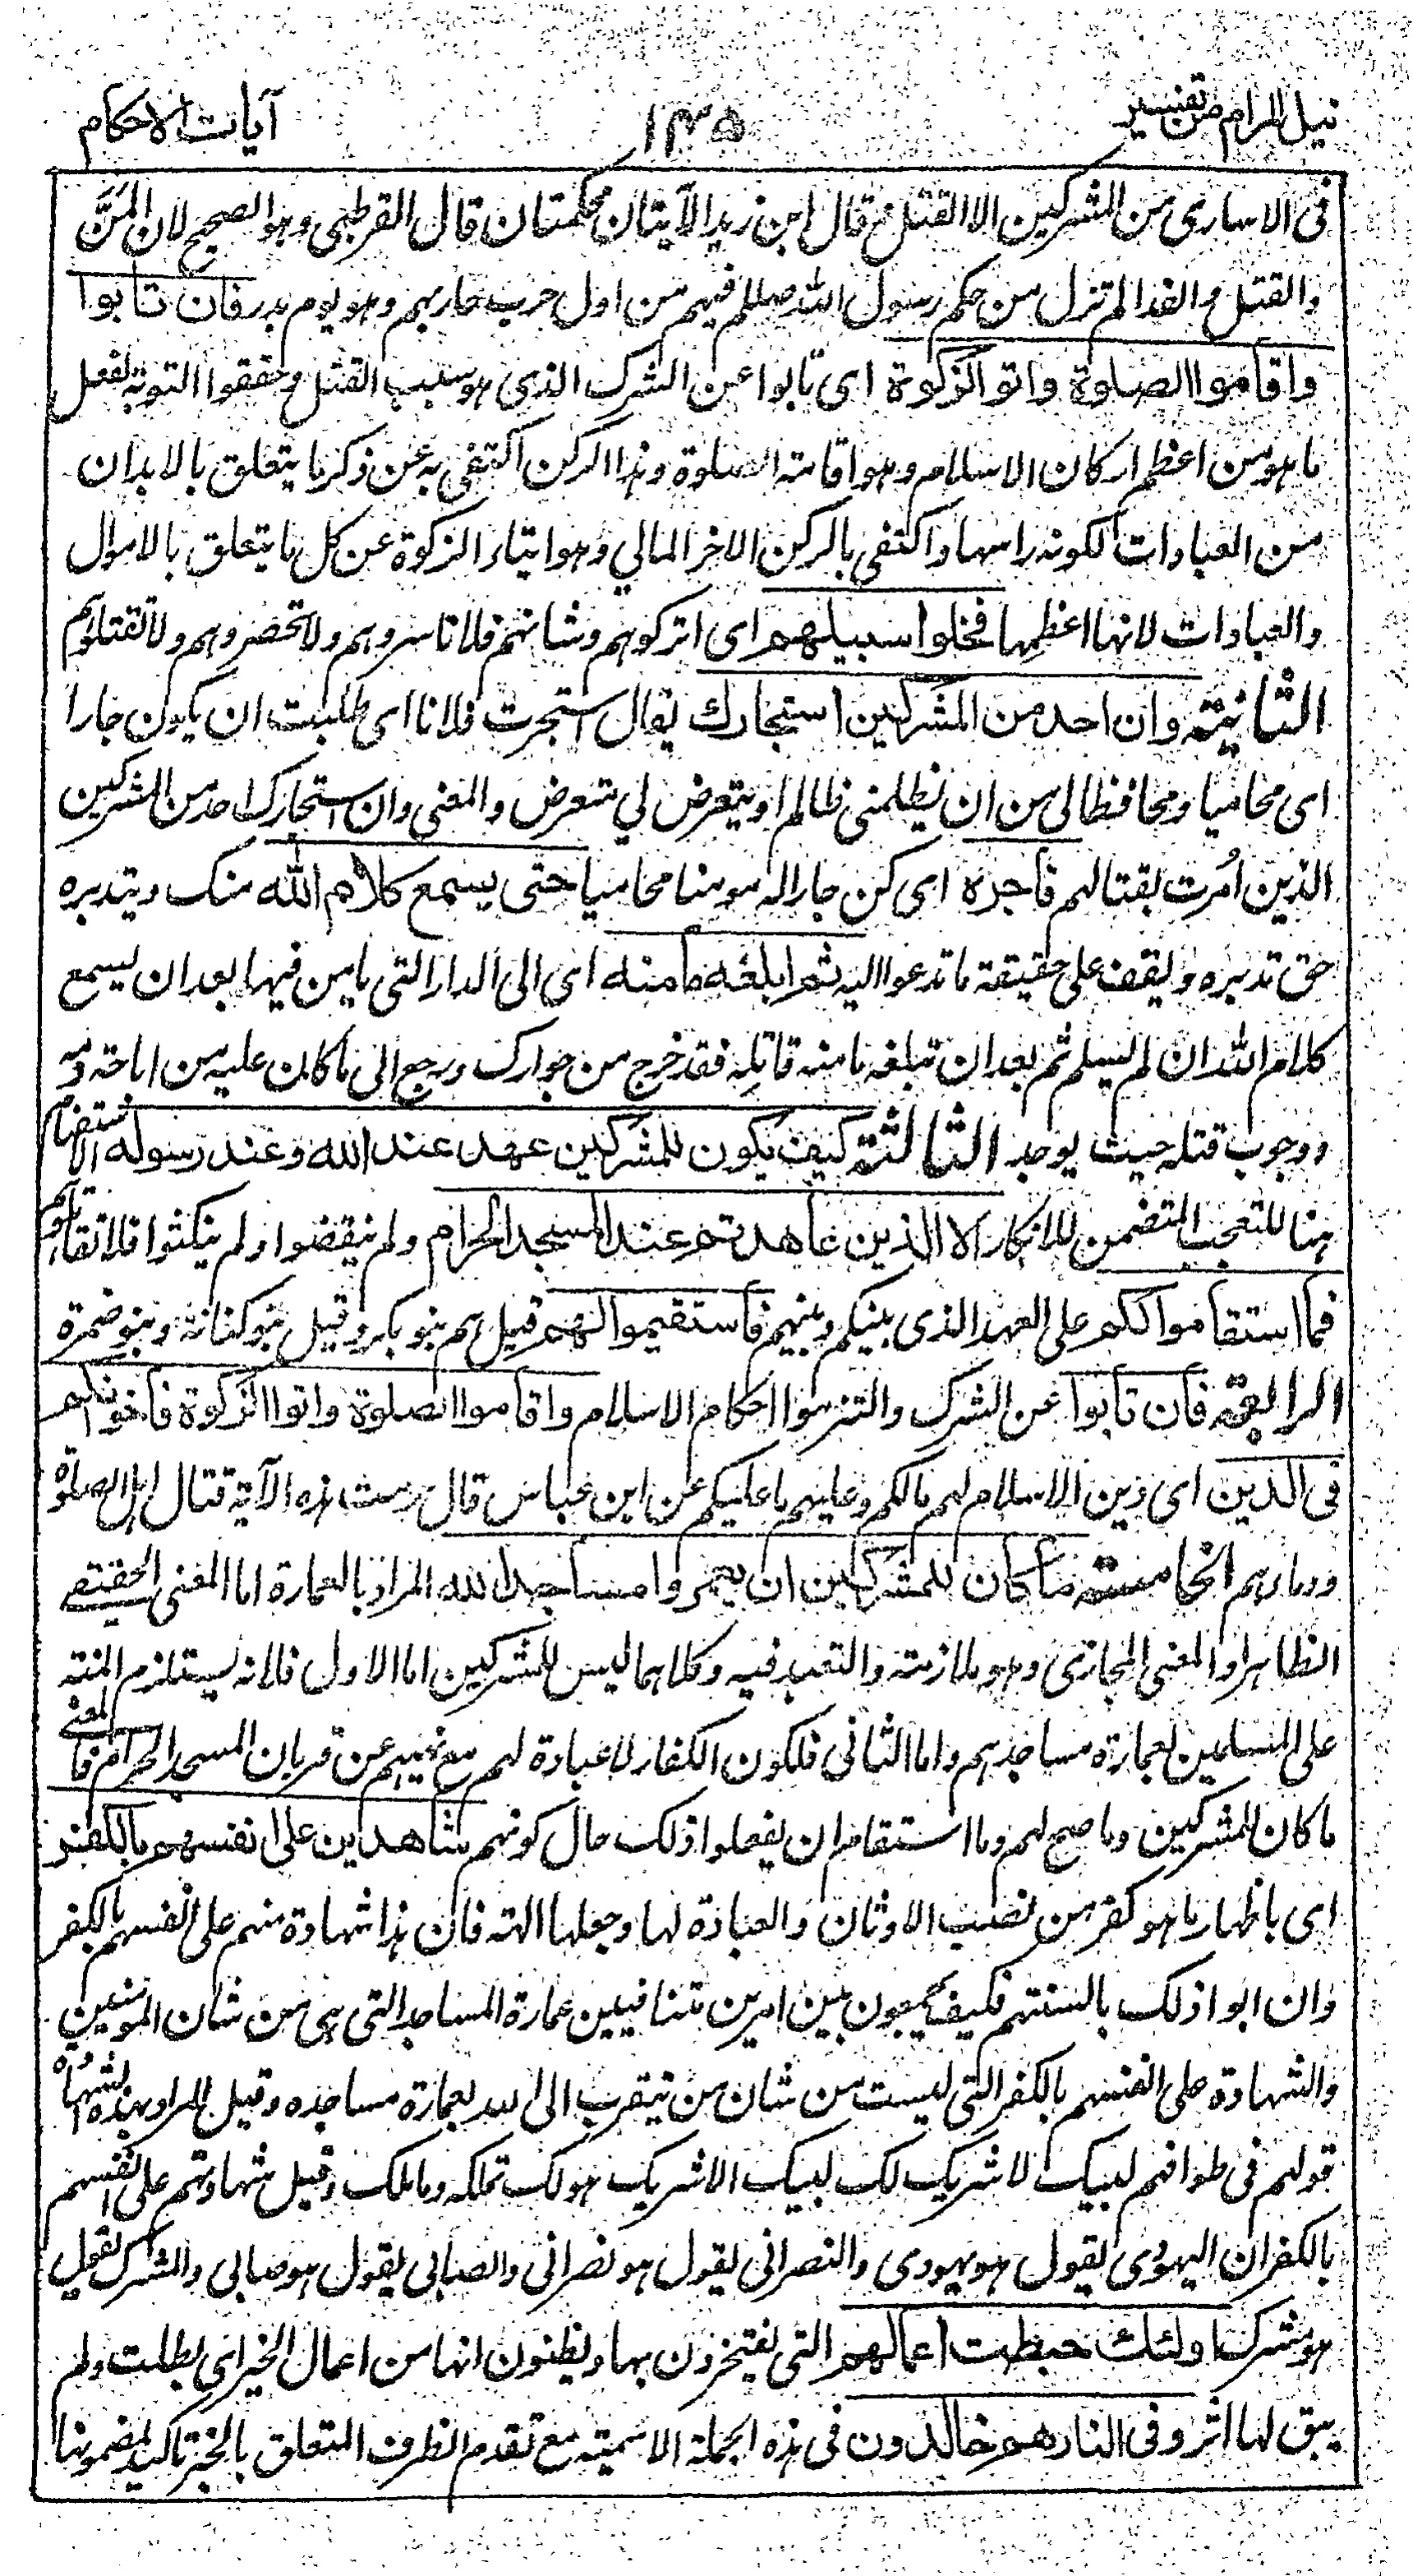 نيل المرام من تفسير ١٤٥ آيات الاحكام
فى الاسارى من المشركين الا القتل وقال ابن زيد الآيتان محكمتان قال القرطبى وهو الصحيح لان المَنَّ
والقتل والفدا لم تزل من حكم رسول الله صللم فيهم من اول حرب حاربهم وهو يوم بدر فان تابوا
واقاموا الصلوة واتوا الزكوة اى تابوا عن الشرك الذى هو سبب القتل وحققوا التوبة بفعل
ما هو من اعظم اركان الاسلام وهو اقامة الصلوة وهذا الركن اكتفى به عن ذكر ما يتعلق بالابدان
من العبادات لكونه راسها واكتفى بالركن الاخر المالي وهو ايتاء الزكوة عن كل ما يتعلق بالاموال
والعبادات لانها اعظمها فخلوا سبيلهم اى اتركوهم وشانهم فلا تاسروهم ولا تحصروهم ولا تقتلوهم
الثانية وان احد من المشركين استجارك يقال استجرت فلانا اى طلبت ان يكون جارا
اى محاميا ومحافظا لى من ان يظلمنى ظالم او يتعرض لي متعرض والمعنى وان استجارك احد من المشركين
الذين اُمرت بقتالهم فاجره اى كن جارا له مومنا محاميا حتى يسمع كلام الله منك ويتدبره
حق تدبره ويقف على حقيقة ما تدعوا اليه ثم ابلغه مامنه اى الى الدار التى يامن فيها بعد ان يسمع
كلام الله ان لم يسلم ثم بعد ان تبلغه مامنه قاتله فقد خرج من جوارك ورجع الى ما كان عليه من اباحة دمه
ووجوب قتله حيث يوجد الثالثة كيف يكون للمشركين عهد عند الله وعند رسوله الاستفهام
هنا للتعجب المتضمن للانكار الا الذين عاهدتم عند المسجد الحرام ولم ينقضوا ولم ينكثوا فلا تقاتلوهم
فما استقاموا لكم على العهد الذى بينكم وبينهم فاستقيموا لهم قيل هم بنو بكر وقيل بنو كنانة وبنو ضمرة
الرابعة فان تابوا عن الشرك والتزموا احكام الاسلام واقاموا الصلوة واتوا الزكوة فاخوانكم
فى الدين اى دين الاسلام لهم ما لكم وعليهم ما عليكم عن ابن عباس قال حرمت هذه الآية قتال اهل الصلوة
ودمارهم الخامسة ما كان للمشركين ان يعمروا مساجد الله المراد بالعمارة اما المعنى الحقيقے
الظاهر او المعنى المجازى وهو ملازمته والتعبد فيه وكلاهما ليس للمشركين اما الاول فلانه يستلزم المنة
على المسلمين بعمارة مساجدهم واما الثانى فلكون الكفار لا عبادة لهم مع نهيهم عن قربان المسجد الحرام فالمعنى
ما كان للمشركين وما صح لهم وما استقام ان يفعلوا ذلك حال كونهم شاهدين على انفسهم بالكفر
اى باظهار ما هو كفر من نصب الاوثان والعبادة لها وجعلها الهة فان هذا شهادة منهم على انفسهم بالكفر
وان ابوا ذلك بالسنتهم فكيف يجمعون بين امرين متنافيين عمارة المساجد التى هى من شان المومنين
والشهادة على انفسهم بالكفر التى ليست من شان من يتقرب الى الله بعمارة مساجده وقيل المراد بهذه الشهادة
قولهم فى طوافهم لبيك لا شريك لك لبيك الا شريك هو لك تملكه وما ملك وقيل شهادتهم على انفسهم
بالكفر ان اليهودى يقول هو يهودى والنصرانى يقول هو نصرانى والصابى يقول هو صابى والمشرك يقول
هو مشرك اولئك حبطت اعمالهم التى يفتخرون بها ويظنون انها من اعمال الخير اى بطلت ولم
يبق لها اثر وفى النار هم خالدون فى هذه الجملة الاسمية مع تقدم الظرف المتعلق بالخبر تاكيد لمضمونها